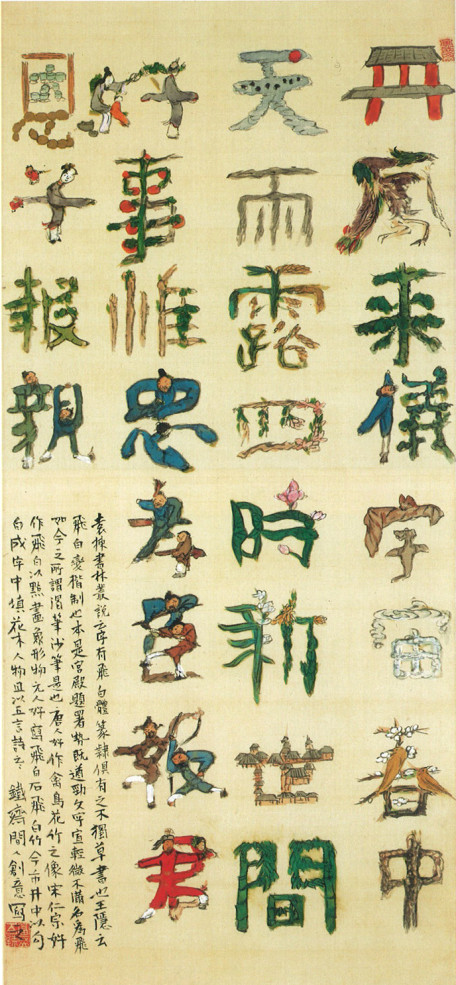 丹鳳来儀宇宙春中
天雨露四時新世間
好事惟忠孝臣報君
恩子報親
書林叢説云字有飛白體篆隸俱有之不獨草書也王隱云
飛白變楷制也本是宮殿題署勢既遒勁文字宜輕微不滿名為飛
如今之所謂渴筆沙筆是也唐人好作禽鳥花竹之像宋仁宗好
作飛白以點畫象形物元人好寫飛白石飛白竹今市井中以勾
白成字中填花木人物且以五言詩云 鐵齋閒人創意寫之